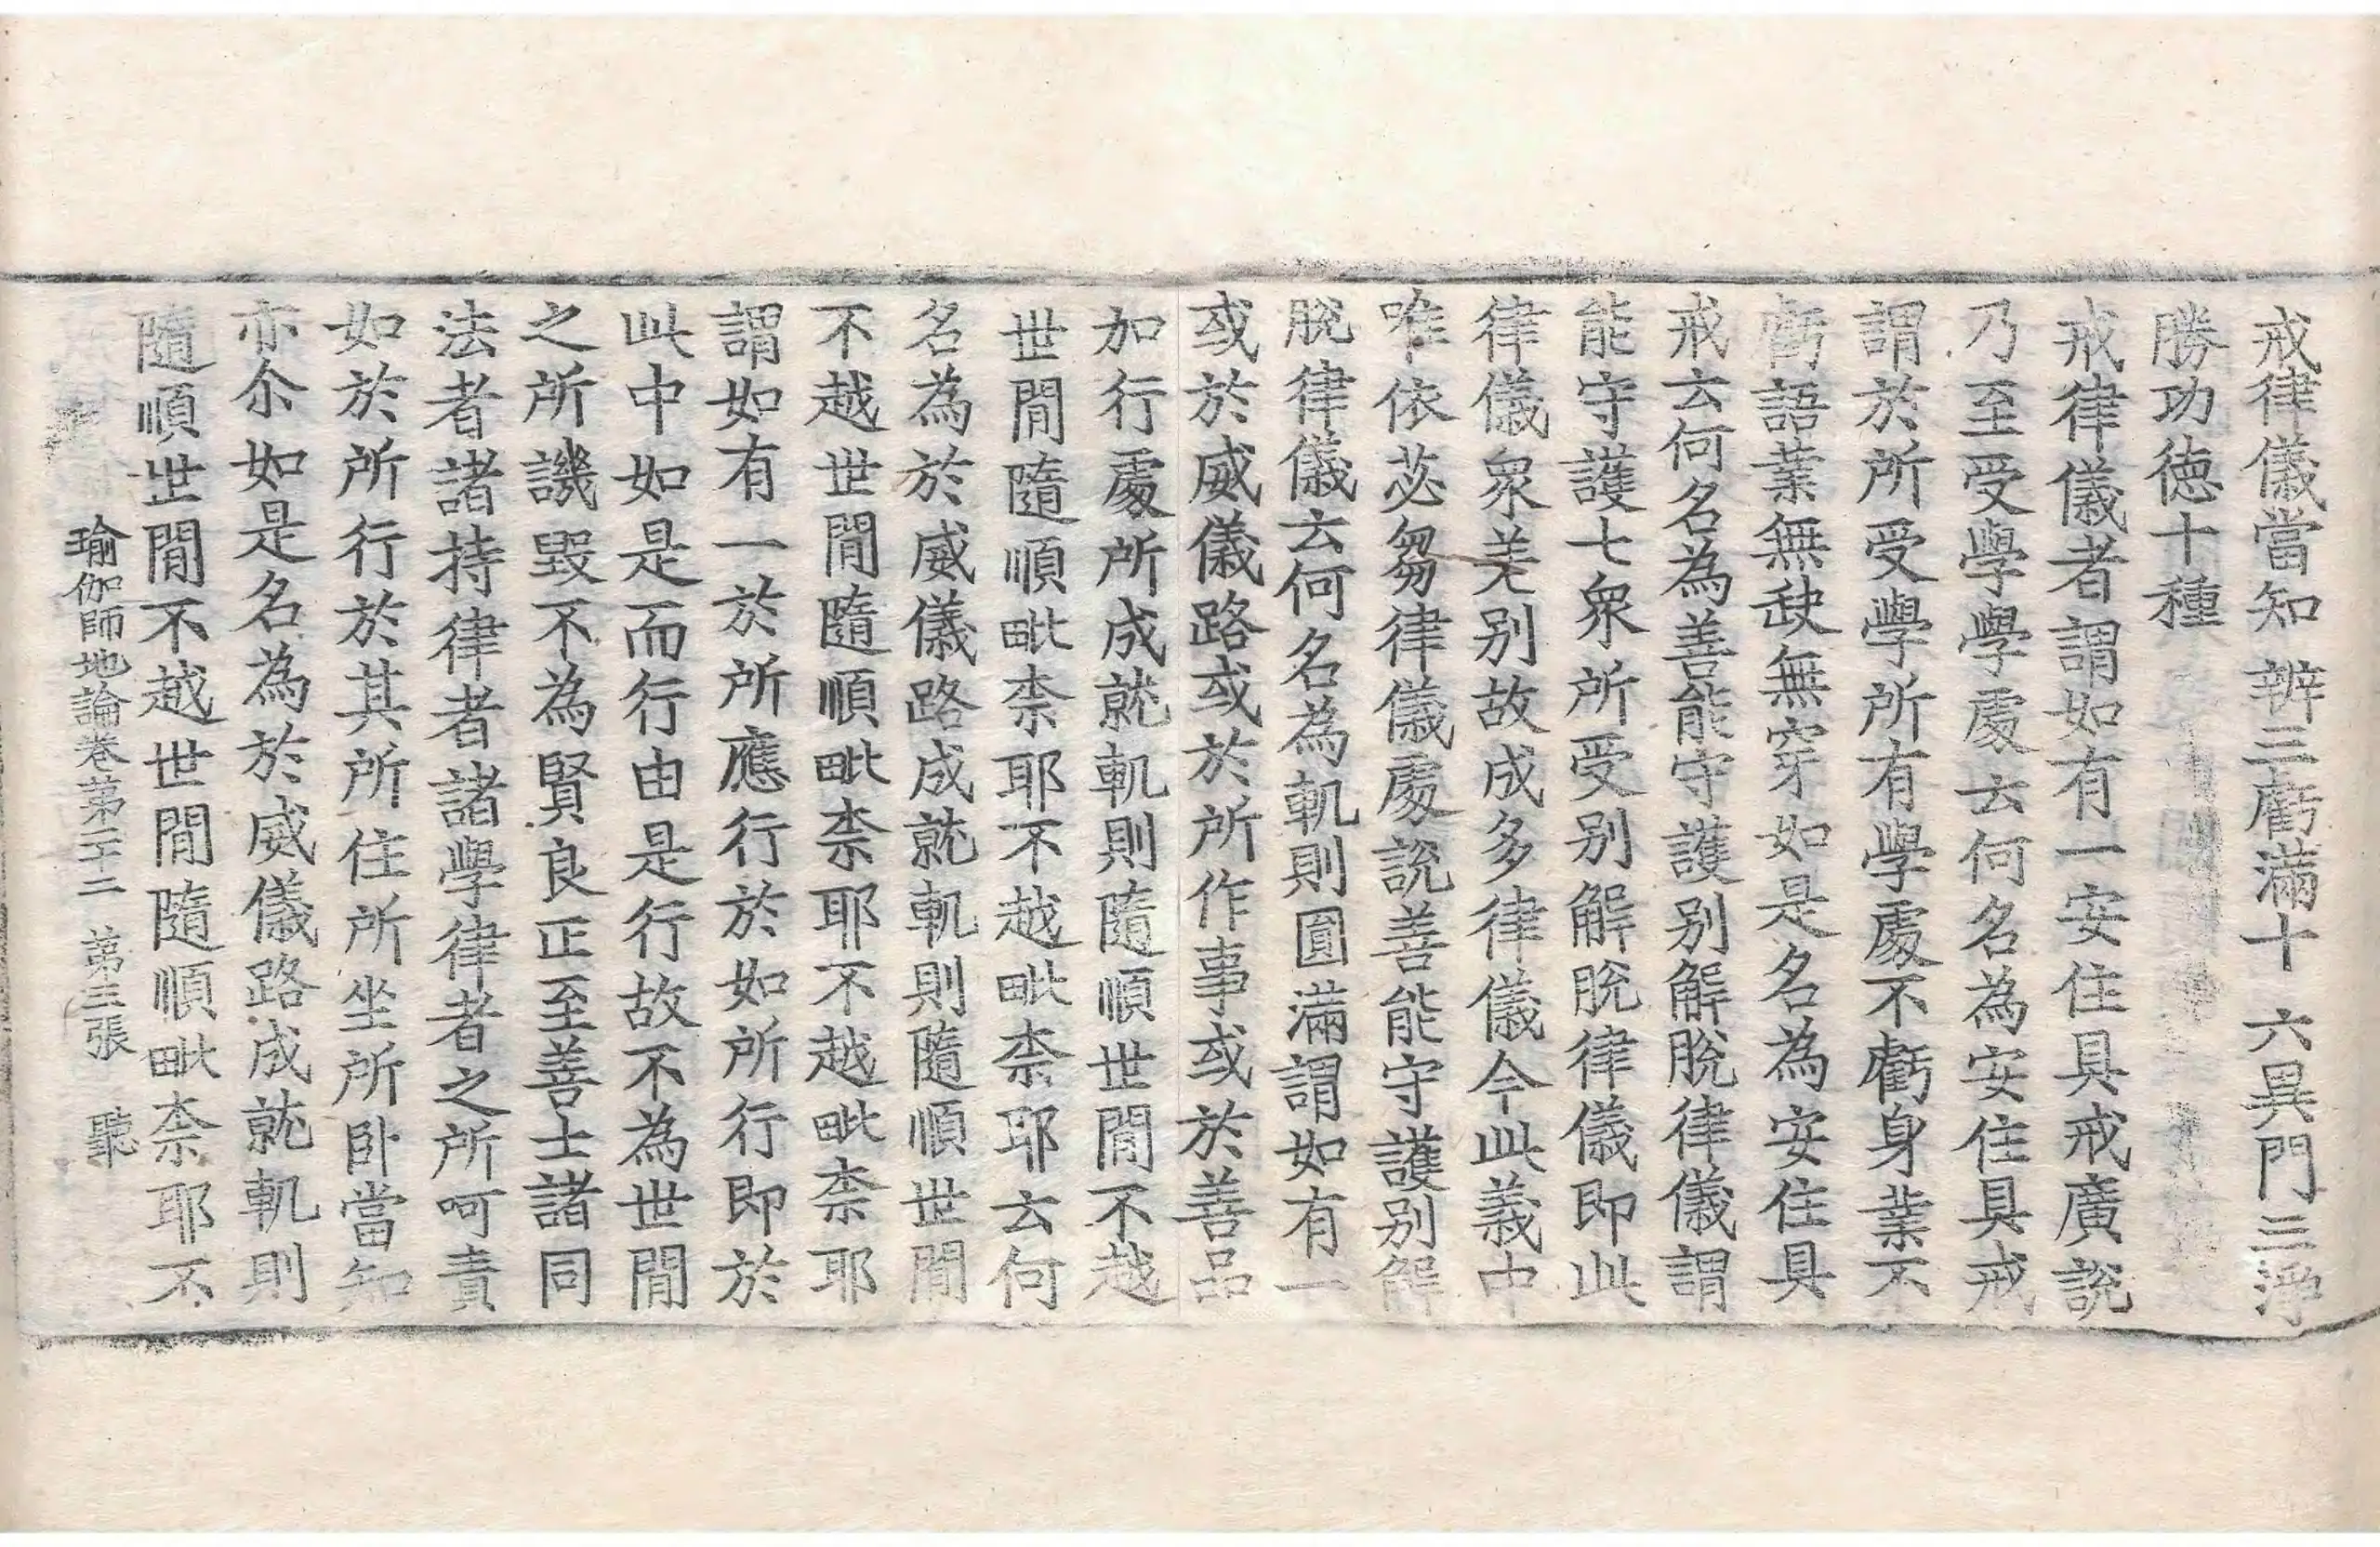 戒律儀當知 辨三虧滿十 六異門三淨
勝功德十種
戒律儀者謂如有一安住具戒廣說
乃至受學學處云何名為安住具戒
謂於所受學所有學處不虧身業不
虧語業無缺無穿如是名為安住具
戒云何名為善能守護別解脫律儀謂
能守護七眾所受別解脫律儀即此
律儀眾差別故成多律儀今此義中
唯依苾芻律儀處說善能守護別解
脫律儀云何名為軌則圓滿謂如有一
或於威儀路或於所作事或於善品
加行處所成就軌則隨順世間不越
世間隨順毗柰耶不越毗柰耶云何
名為於威儀路成就軌則隨順世間
不越世間隨順毗柰耶不越毗柰耶
謂如有一於所應行於如所行即於
此中如是而行由是行故不為世間
之所譏毀不為賢良正至善士諸同
法者諸持律者諸學律者之所呵責
如於所行於其所住所坐所臥當知
亦尒如是名為於威儀路成就軌則
隨順世間不越世間隨順毗柰耶不
瑜伽師地論卷第二十二 第三張 聽